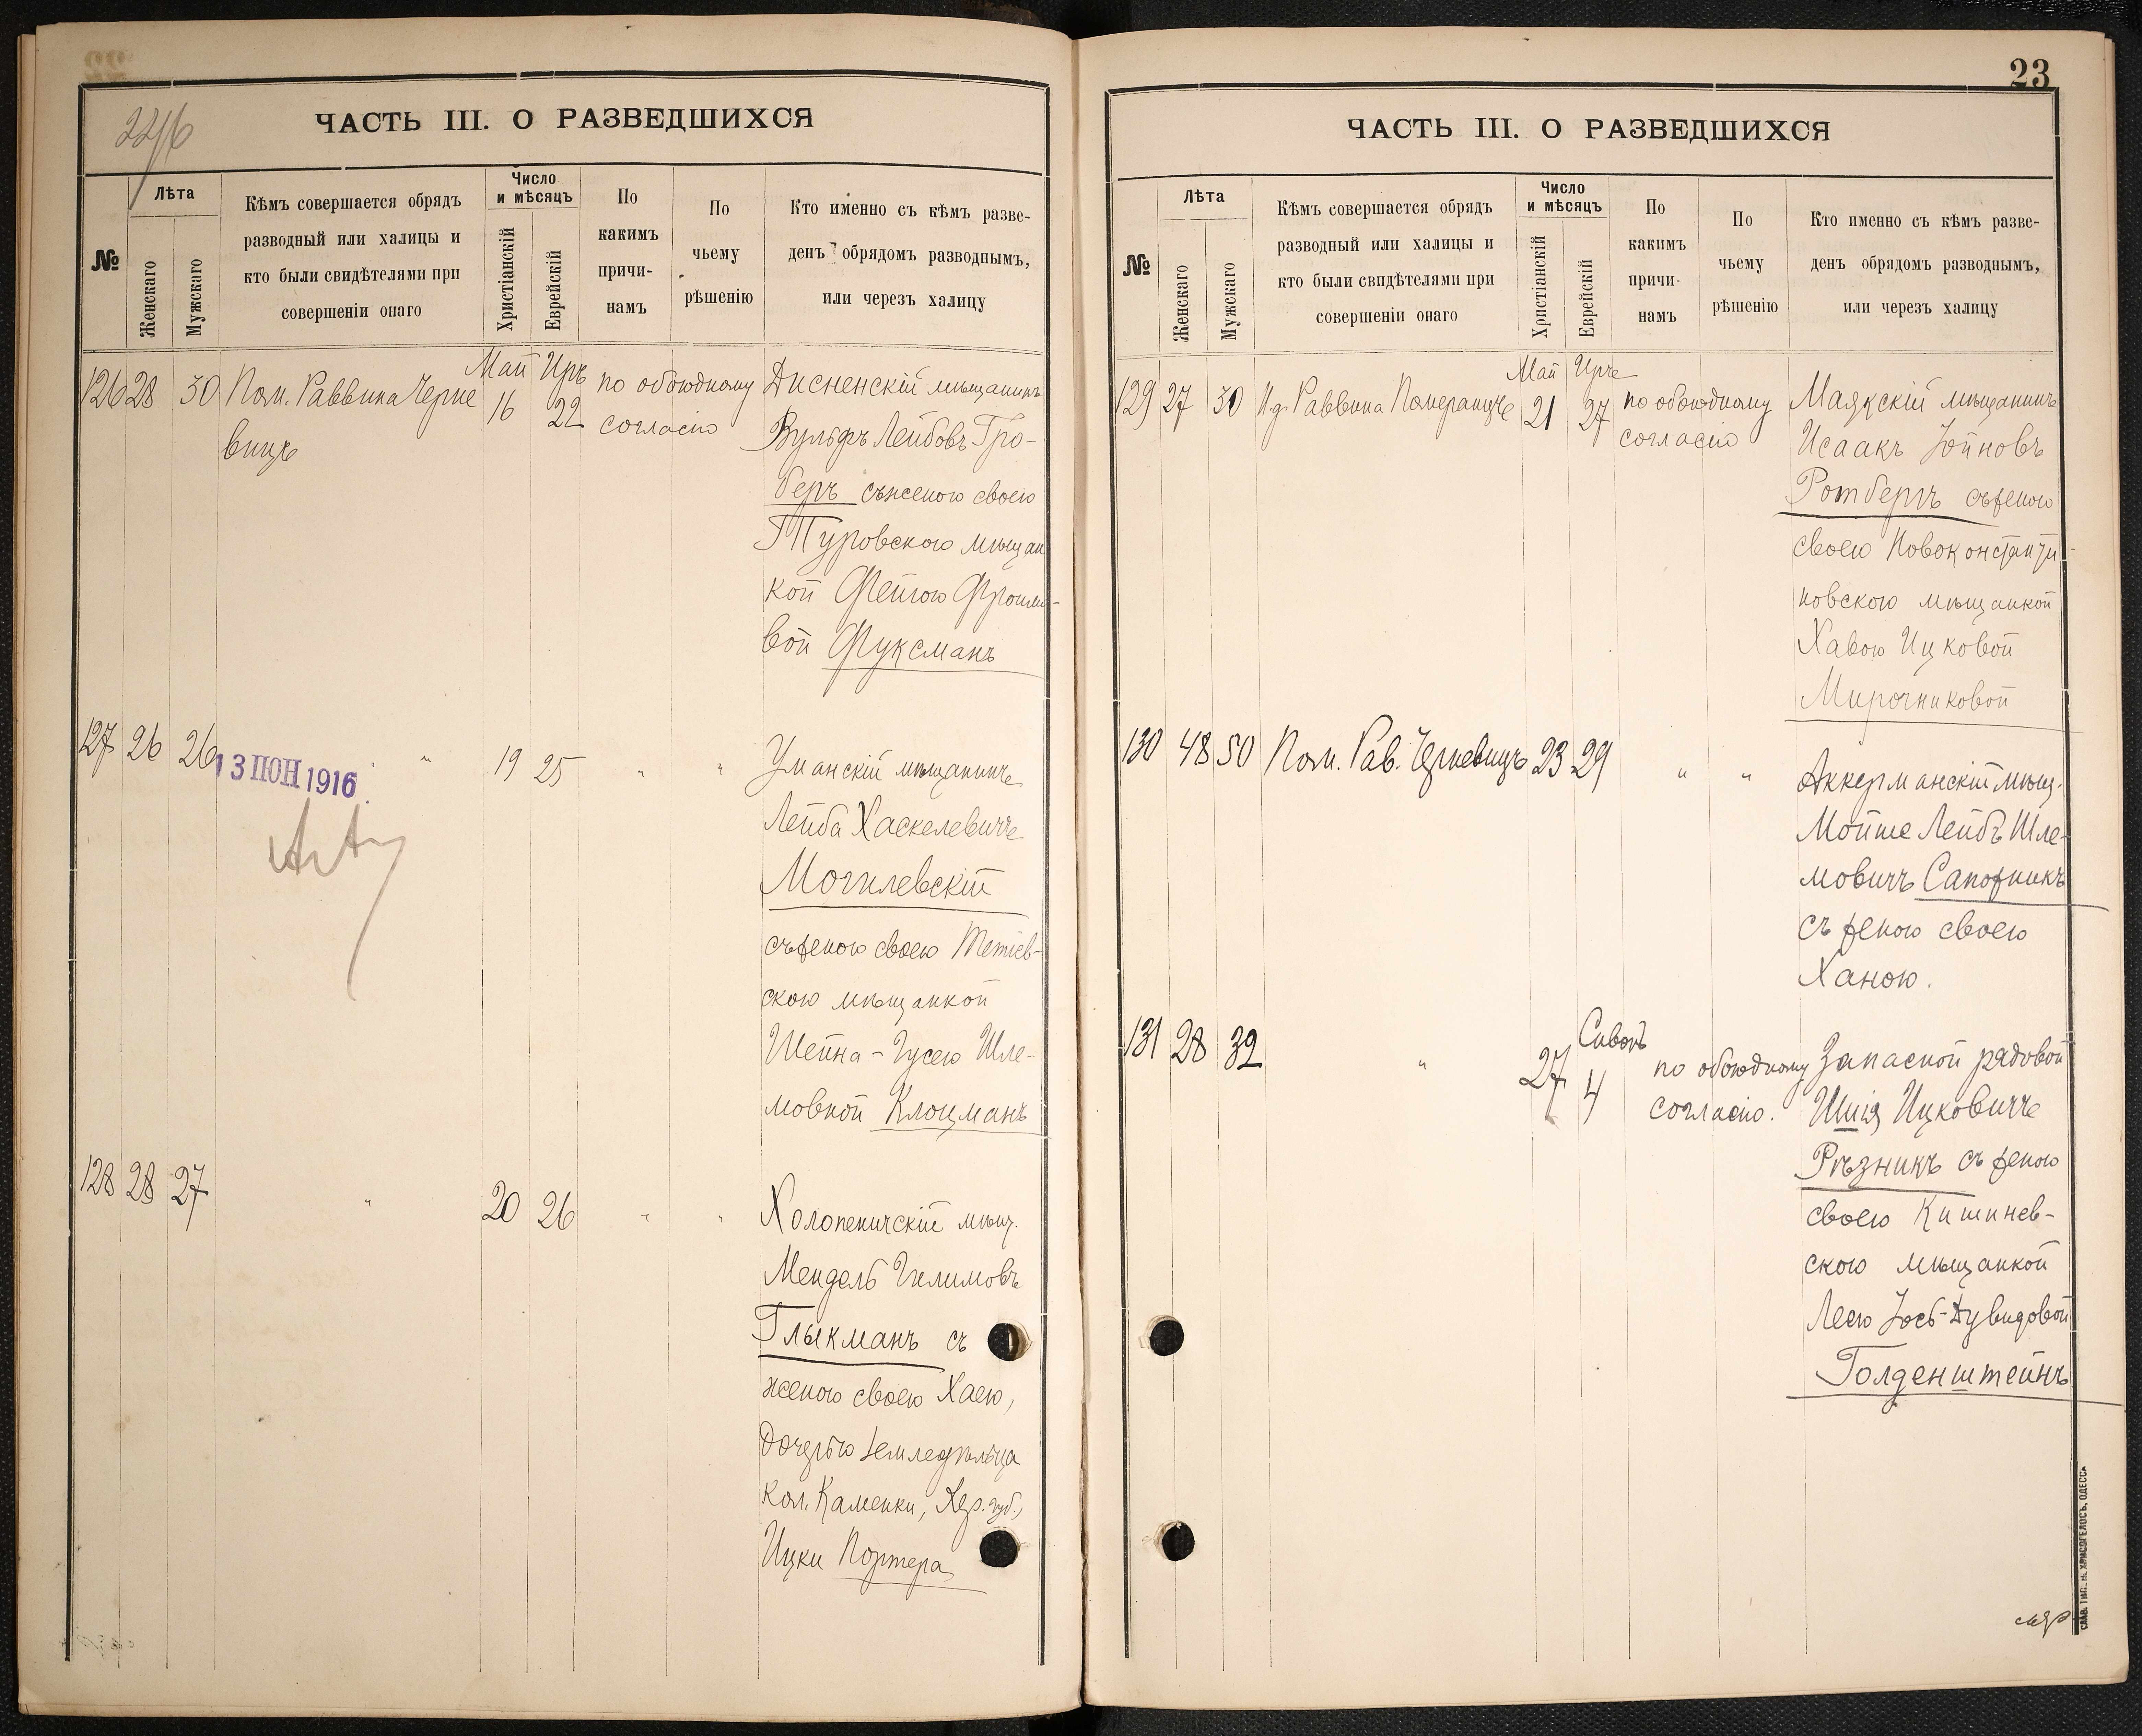 ЧАСТЬ III. О РАЗВЕДШИХСЯ
№
Лѣта
Женскаго
Мужскаго
Кѣмъ совершается обрядъ
разводный или халицы и
кто были свидѣтелями при
совершеніи онаго
Число
и мѣсяцъ
Христіанскій
Еврейскій
По
какимъ
причи-
намъ
По
чьему
рѣшенію
Кто именно съ кѣмъ разве-
денъ обрядомъ разводнымъ,
или черезъ халицу
Май Иръ
126 28 30 Пом. Раввина Черне 16 22 по обоюдному Дисненскій мѣщанинъ
вицъ согласію Вульфъ Лейбовъ Гро-
беръ съ женою своею
Туровскою мѣщан
кой Фейгою Фроимо-
вой Фуксманъ
127 26 26 " 19 25 " " Уманскій мѣщанинъ
13 ІЮН 1916
Лейба Хаскелевичъ
Могилевскій
съ женою своею Тетіев-
скою мѣщанкой
Шейна-Гусею Шле-
мовной Клоцманъ
128 28 27 " 20 26 " " Холопеничскій мѣщ.
Мендель Гилимовъ
Глыкманъ съ
женою своею Хаею,
дочерью земледѣльца
кол. Каменки, Хер. губ.,
Ицки Портера
23
ЧАСТЬ III. О РАЗВЕДШИХСЯ
№
Лѣта
Женскаго
Мужскаго
Кѣмъ совершается обрядъ
разводный или халицы и
кто были свидѣтелями при
совершеніи онаго
Число
и мѣсяцъ
Христіанскій
Еврейскій
По
какимъ
причи-
намъ
По
чьему
рѣшенію
Кто именно съ кѣмъ разве-
денъ обрядомъ разводнымъ,
или черезъ халицу
Май Иръ
129 27 30 И.д. Раввина Померанцъ 21 27 по обоюдному Маякскій мѣщанинъ
согласію Исаакъ Іойновъ
Ротбергъ съ женою
своею Новоконстанти-
новскою мѣщанкой
Хавою Ицковой
Мирочниковой
130 48 50 Пом. Рав. Черневицъ 23 29 " " Аккерманскій мѣщ.
Мойше Лейбъ Шле-
мовичъ Сапожникъ
съ женою своею
Ханою.
Сивонъ
131 28 32 " 27 4 по обоюдному Запасной рядовой
согласію. Шия Ицковичъ
Рѣзникъ съ женою
своею Кишинев-
скою мѣщанкой
Леею Іось-Дувидовой
Голденштейнъ